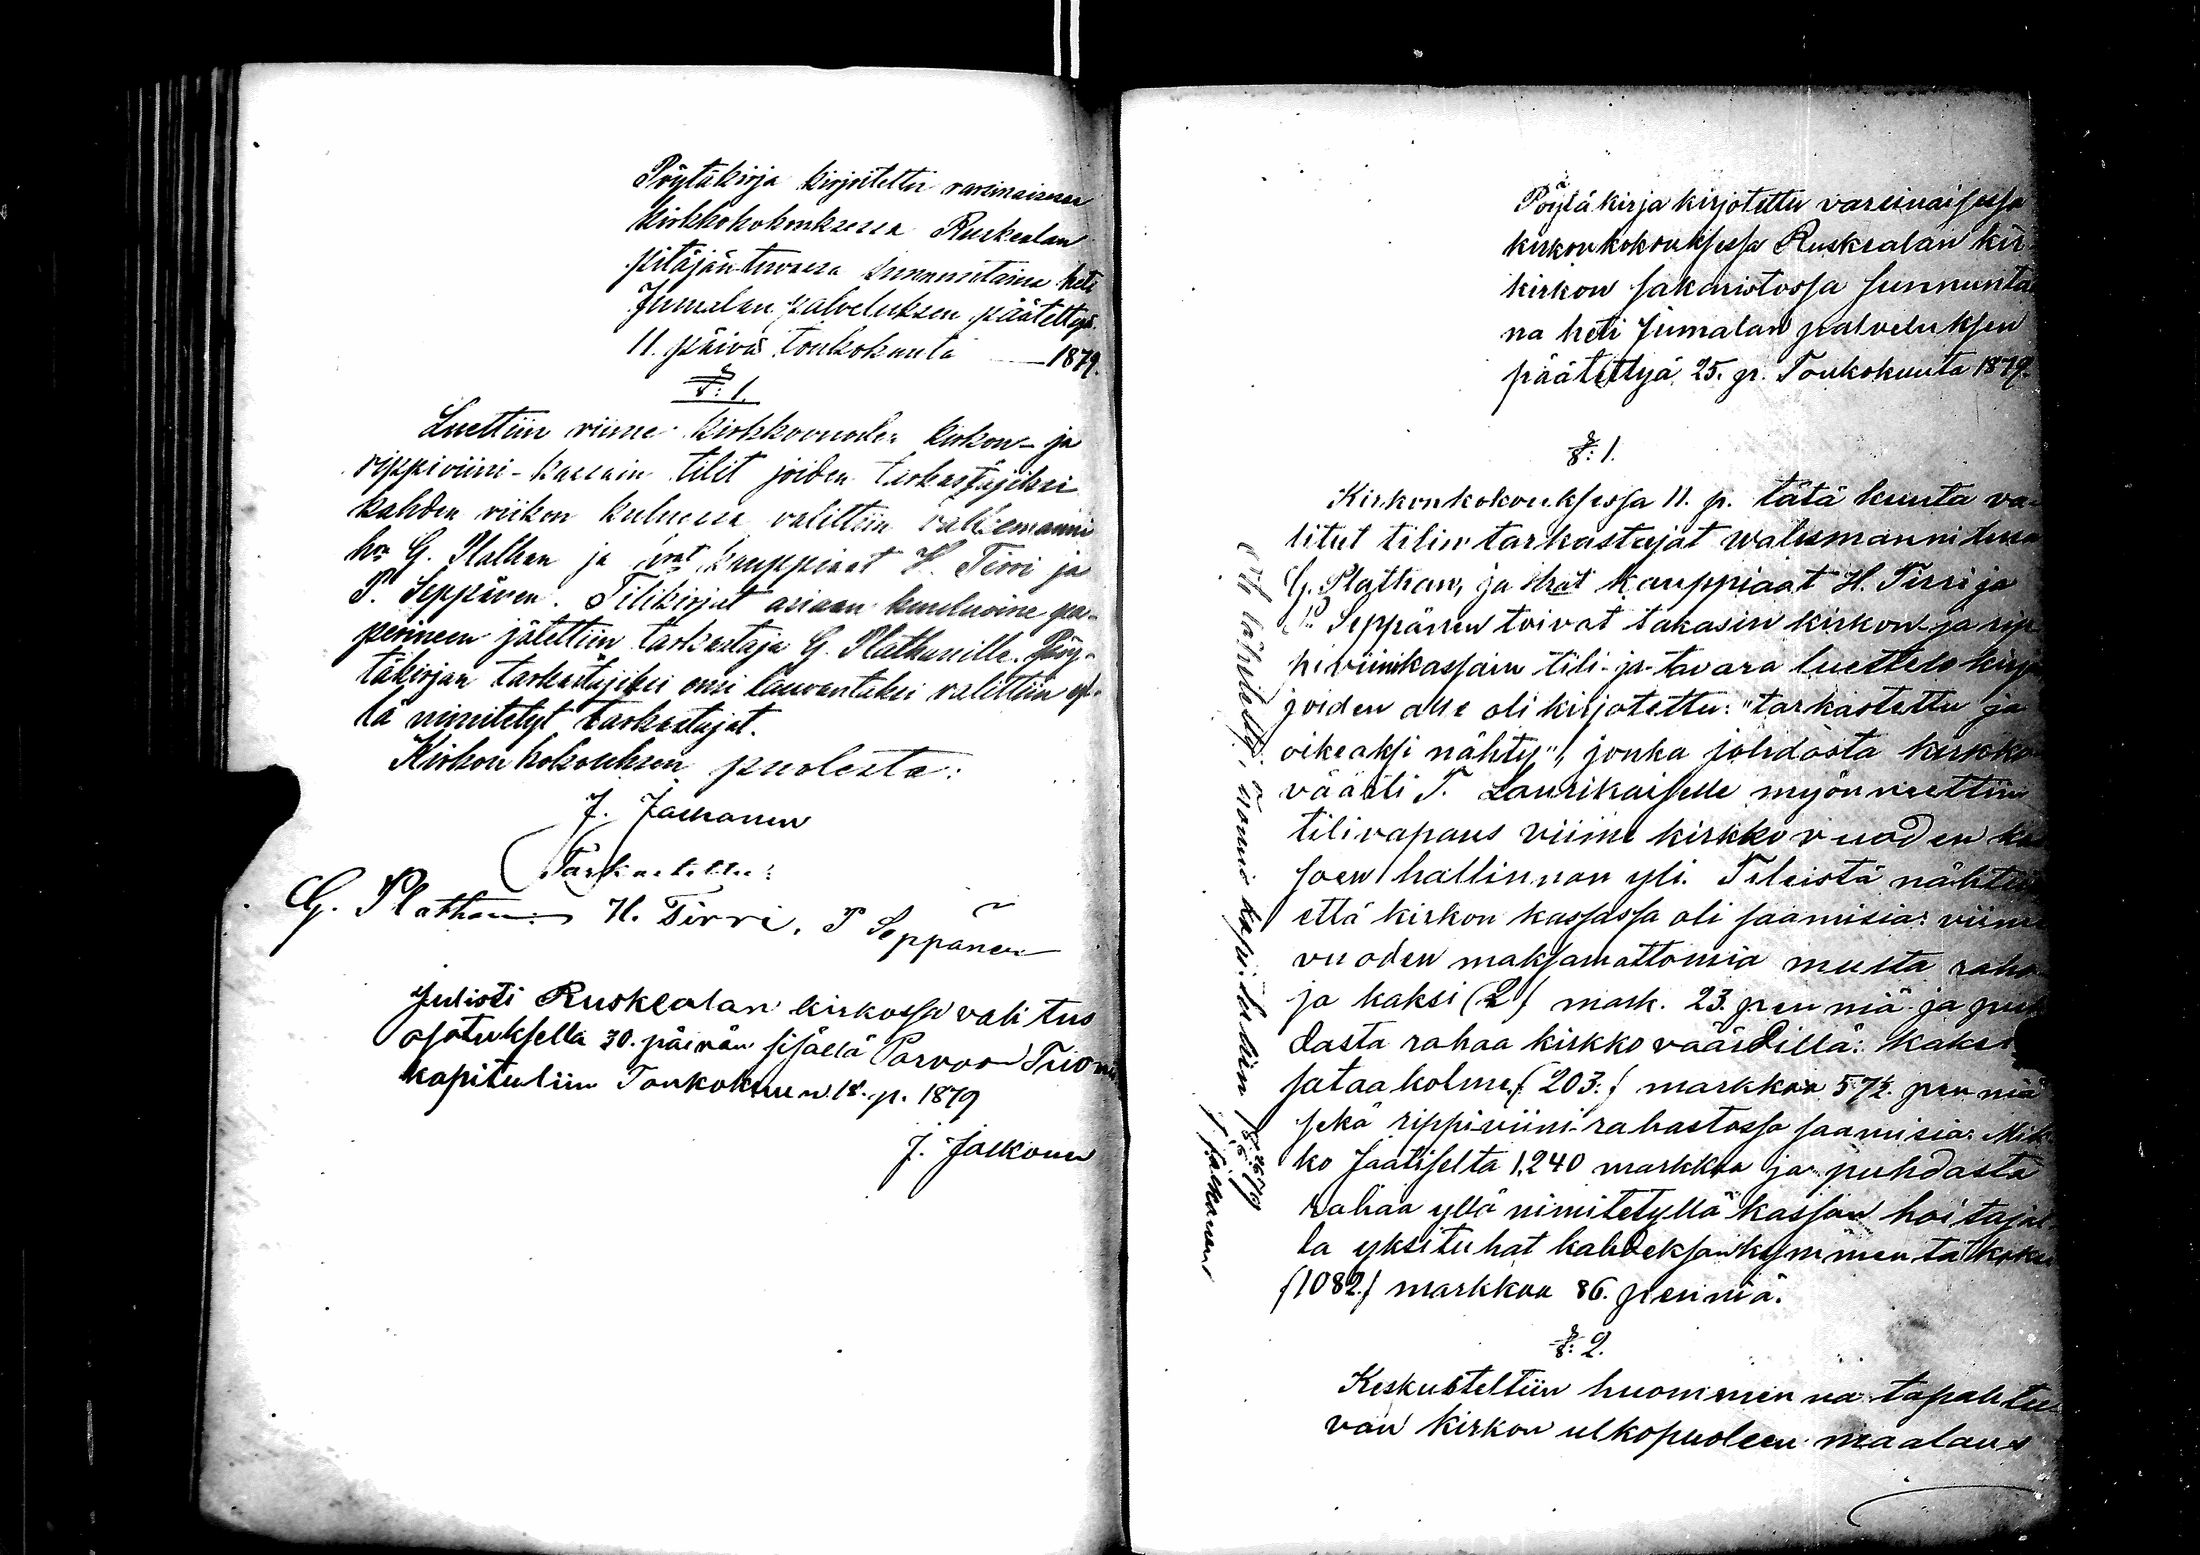 Pöytäkirja kirjoitettu varsinaisessa
kirkkokokouksessa Ruskealan
pitäjäntuvassa sunnuntaina heti
Jumalan palveluksen päätettyä
11. päivä toukokuuta — 1879.
§: 1.
Luettiin viime kirkkovuoden kirkon- ja
rippiviini-kassain tilit joiden tarkastajiksi
kahden viikon kuluessa valittiin vallesmanni
hra G. Plathan ja hrat kauppiaat H. Tirri ja
P. Seppänen. Tilikirjat asiaan kuuluvine pa-
perineen jätettiin tarkastaja G. Plathanille. Pöy-
täkirjan tarkastajiksi ensi lauvantaksi valittiin yl-
lä nimitetyt tarkastajat.
Kirkon kokouksen puolesta:
J. Jalkanen
Tarkastettu:
G. Plathan H. Tirri. P Seppänen
Julisti Ruskealan kirkossa valitus
osotuksella 30. päivän sisällä Porvoon Tuomio
kapituliin Toukokuun 18. p. 1879
J. Jalkanen
Pöytäkirja kirjotettu varsinaisessa
kirkonkokouksessa Ruskealan kir
kirkon sakaristossa sunnunta
na heti Jumalan palveluksen
päätettyä 25. p. Toukokuuta 1879.
§: 1.
Kirkonkokouksessa 11. p. tätä kuuta va-
litut tilin tarkastajat walesmanni
G. Plathan, ja hrat kauppiaat H. Tirri ja
P. Seppänen toivat takasin kirkon ja rip
piviinikassain tili- ja tavara luettelo kirja
joiden alle oli kirjotettu: "tarkastettu ja
oikeaksi nähty", jonka johdosta kirkko
väärti T. Laurikaiselle myönnettiin
tilivapaus viime kirkkovuoden ka
soen hallinnon yli. Tileistä nähtii
että kirkon kassassa oli saamisia: viime
vuoden maksamattomia multa raho
ja kaksi (2) mark. 23. penniä ja puh
dasta rahaa kirkkoväärdillä: kaksi
sataa kolme (203:) markkaa 57½. penniä
sekä rippiviini-rahastossa saamisia: Mik
ko Jaatiselta 1,240 markkaa ja puhdasta
rahaa yllä nimitetyllä kassan hoitajal-
la yksituhat kahdeksankymmentä kaksi
(1082.) markkaa 86. penniä.
§: 2.
Keskusteltiin huomenna tapahtu
van kirkon ulkopuoleen maalaus
J. Jalkanen